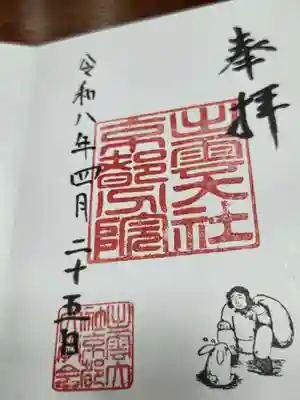 奉拝
出雲大社
京都分院
令和八年四月二十五日
出雲大
社京都
分院会